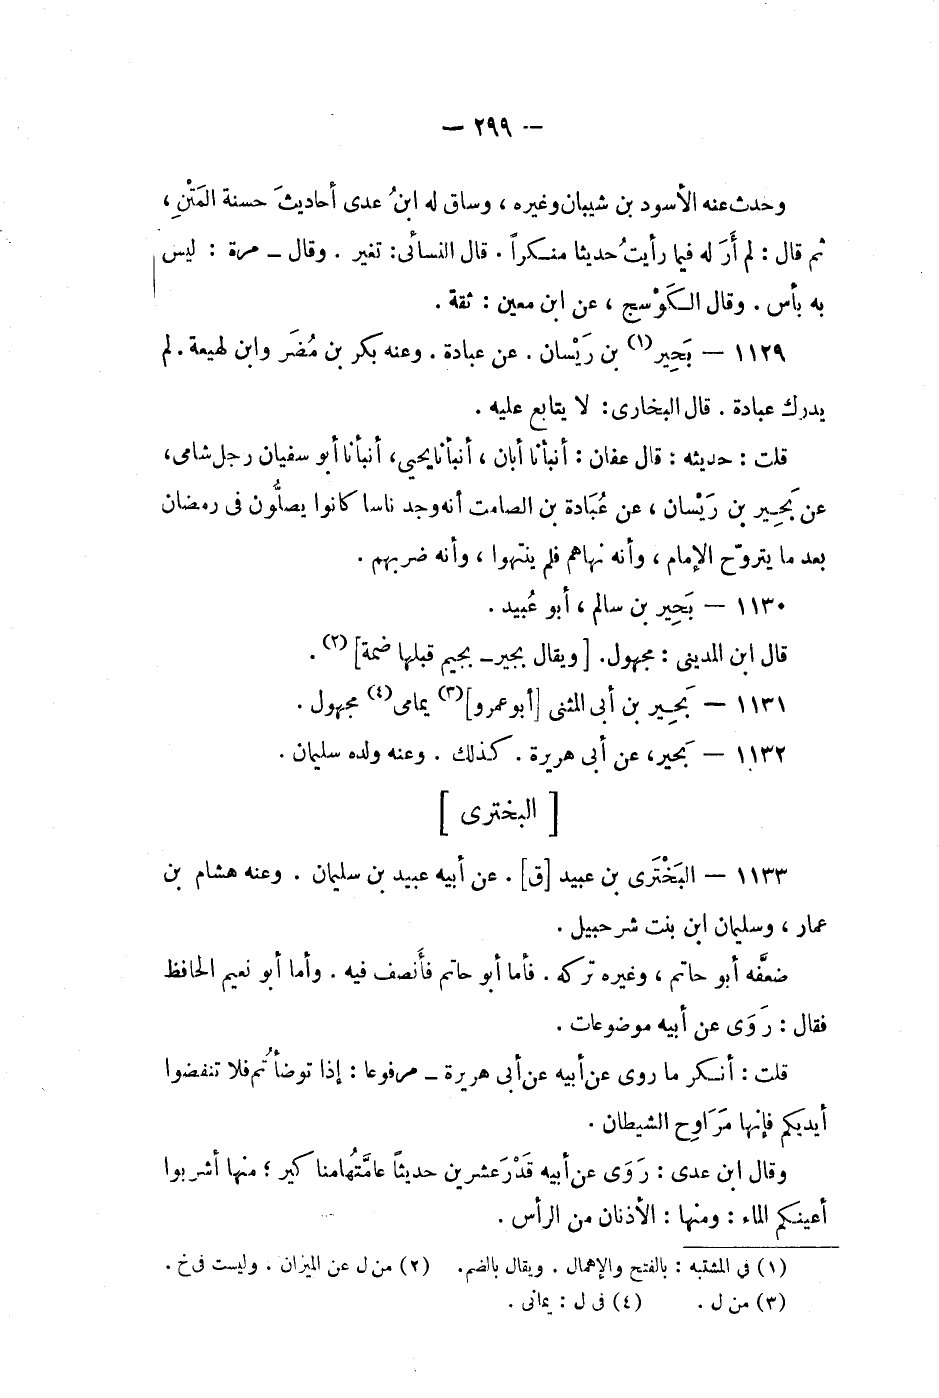 — ٢٩٩ —
وحدث عنه الأسود بن شيبان وغيره ، وساق له ابنُ عدى أحاديثَ حسنة المَتْنِ ،
ثم قال : لم أَرَ له فيما رأيتُ حديثا منكراً . قال النسائى : تغير . وقال ــ مرة : ليس
به بأس . وقال الكَوْسج ، عن ابن معين : ثقة .
١١٢٩ — بَحِير(١) بن رَيْسان . عن عبادة . وعنه بكر بن مُضَر وابن لهيعة . لم
يدرك عبادة . قال البخارى : لا يتابع عليه .
قلت : حديثه : قال عفان : أنبأنا أبان ، أنبأنا يحيى، أنبأنا أبو سفيان رجل شامى،
عن بَحِير بن رَيْسان ، عن عُبَادة بن الصامت أنه وجد ناسا كانوا يصلُّون فى رمضان
بعد ما يتروّح الإمام ، وأنه نهاهم فلم ينتهوا ، وأنه ضربهم .
١١٣٠ — بَحِير بن سالم ، أبو عُبيد .
قال ابن المدينى : مجهول. [ويقال بجير ــ بجيم قبلها ضمة] (٢) .
١١٣١ — بَحِير بن أبى المثنى [أبو عمرو](٣) يمامى(٤) مجهول .
١١٣٢ — بَحير، عن أبى هريرة . كذلك . وعنه ولده سليمان .
[ البخترى ]
١١٣٣ — البَخْتَرى بن عبيد [ق] . عن أبيه عبيد بن سليمان . وعنه هشام بن
عمار ، وسليمان ابن بنت شرحبيل .
ضعَّفه أبو حاتم ، وغيره تركه . فأما أبو حاتم فأَنصف فيه . وأما أبو نعيم الحافظ
فقال : رَوَى عن أبيه موضوعات .
قلت : أنكر ما روى عن أبيه عن أبى هريرة ــ مرفوعا : إذا توضأتُم فلا تنفضوا
أيديكم فإنها مَرَاوِح الشيطان .
وقال ابن عدى : رَوَى عن أبيه قَدْرَ عشرين حديثاً عامَّتُها مناكير ؛ منها أشربوا
أعينكم الماء : ومنها : الأذنان من الرأس .
(١) فى المشتبه : بالفتح والإهمال . ويقال بالضم. (٢) من ل عن الميزان . وليست فى خ .
(٣) من ل . (٤) فى ل : يمانى .